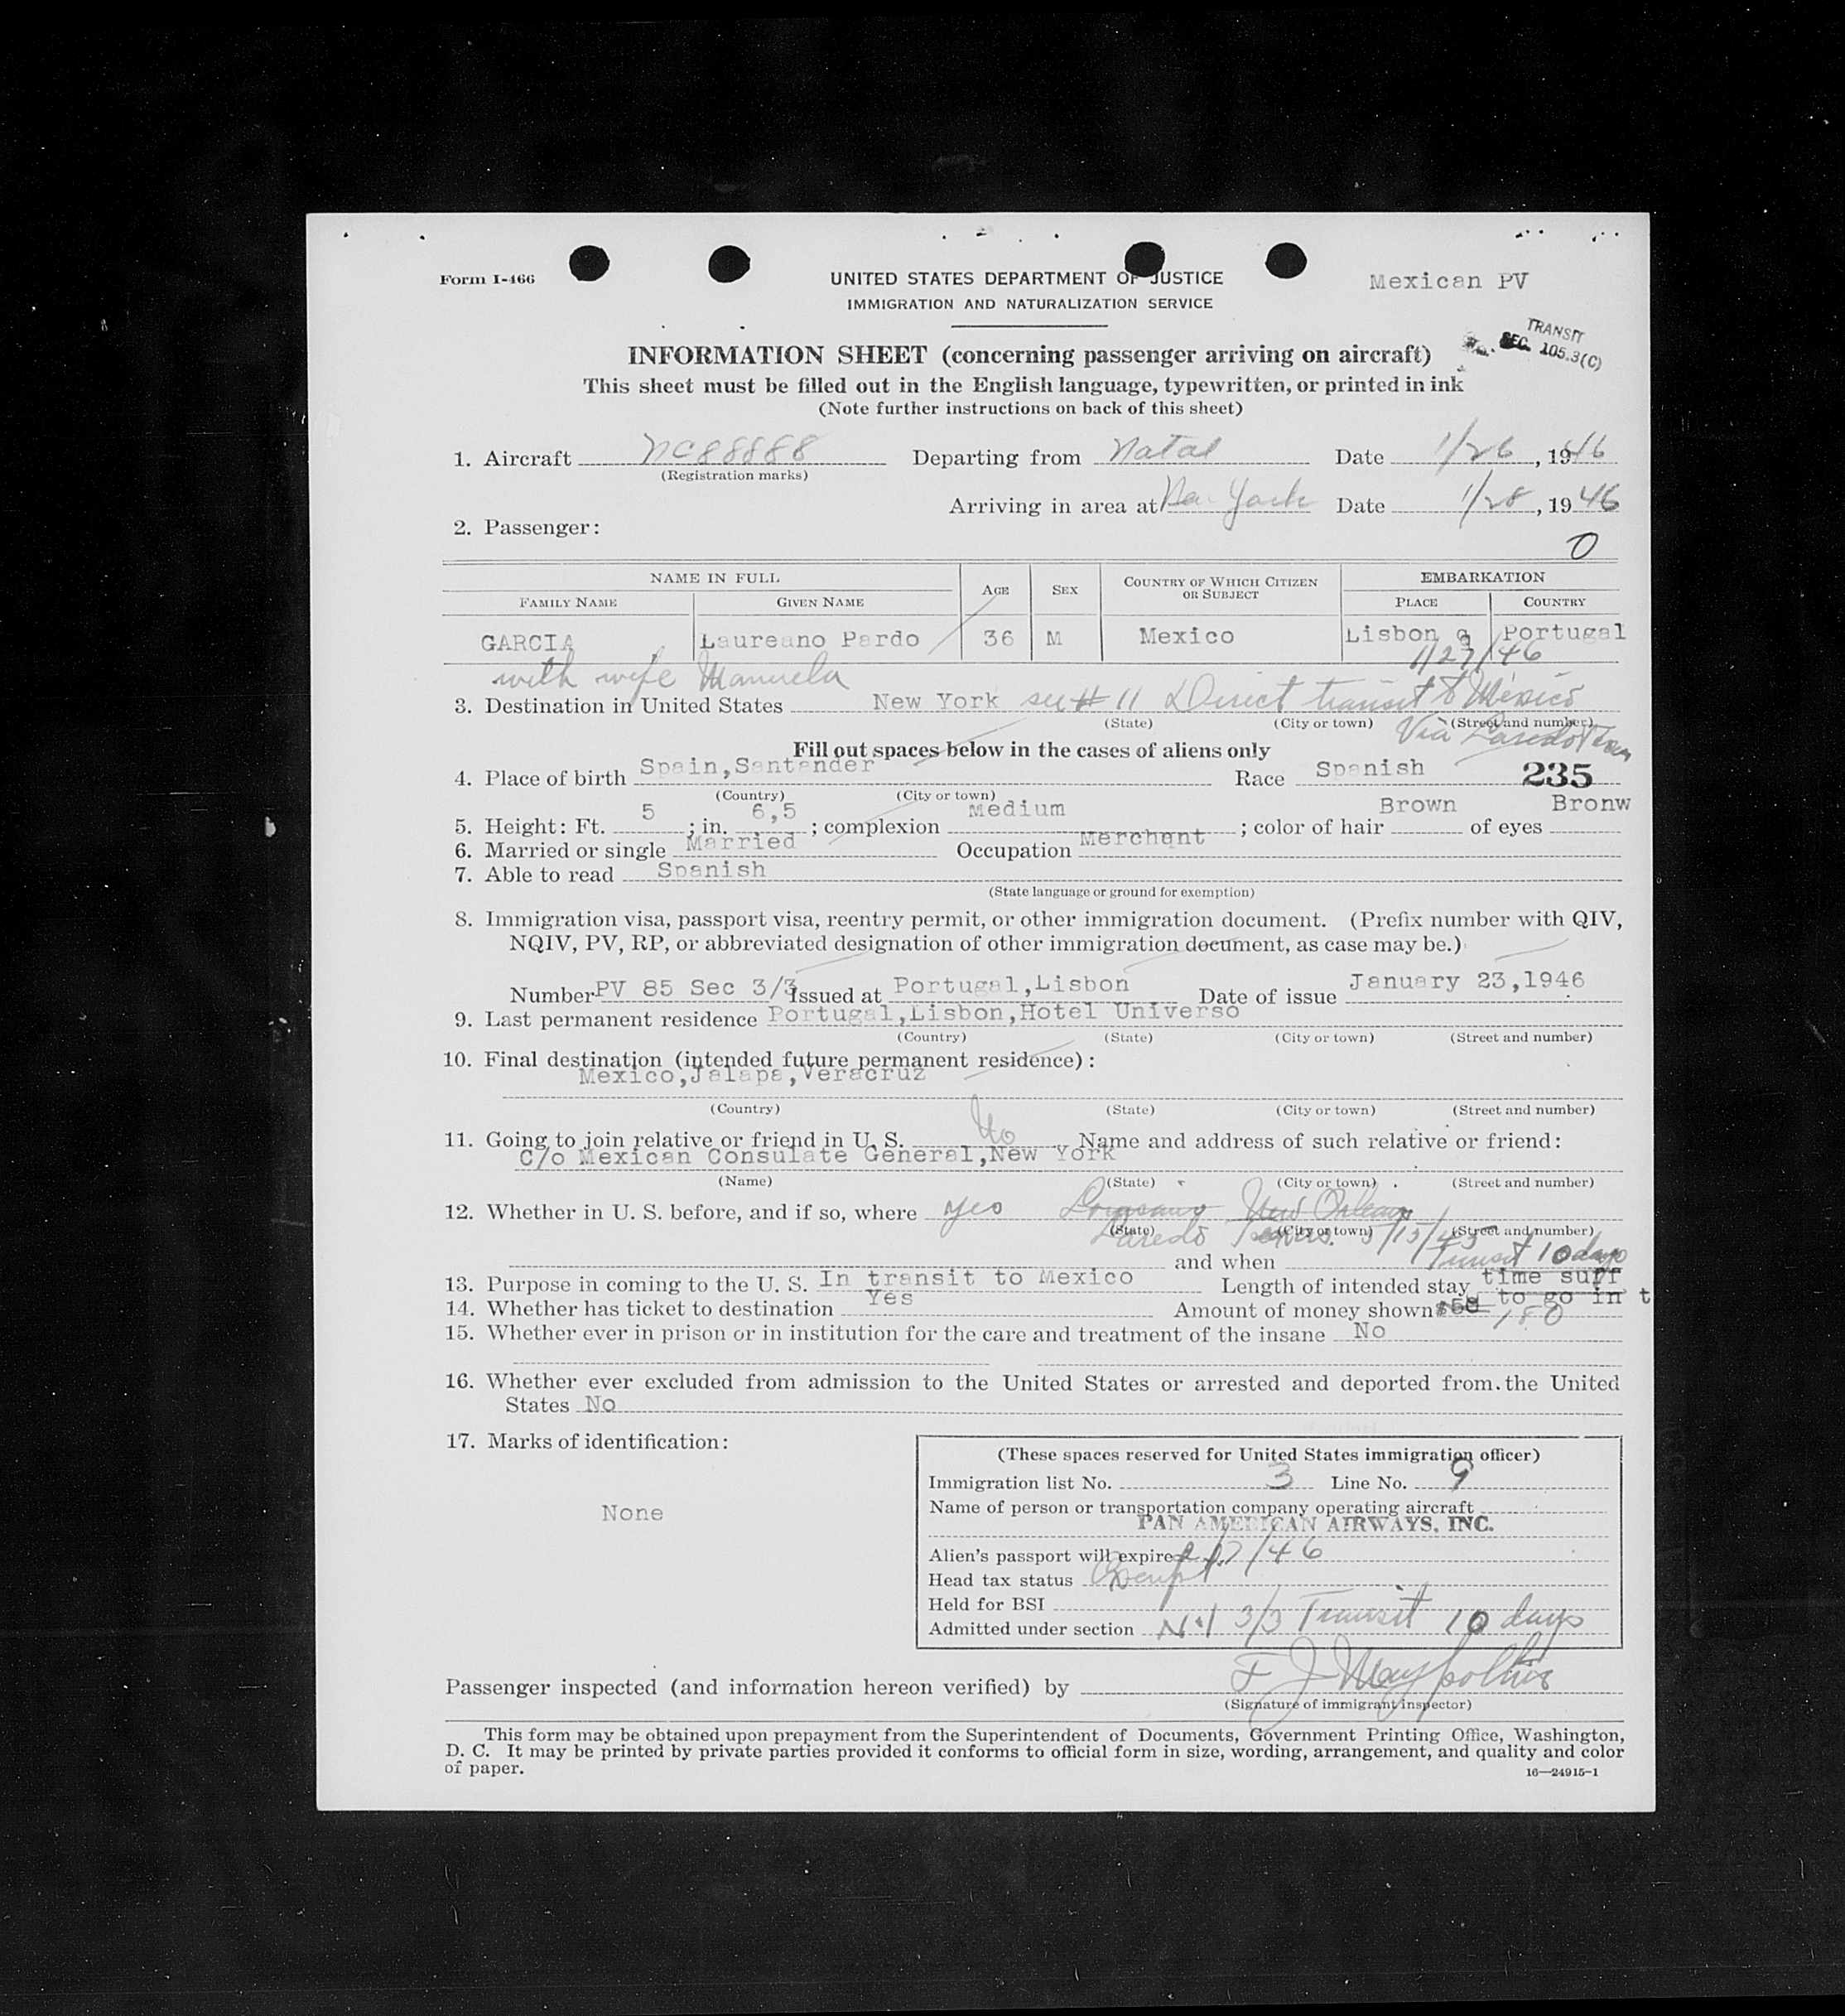 Form I-466
UNITED STATES DEPARTMENT OF JUSTICE
Mexican PV
IMMIGRATION AND NATURALIZATION SERVICE
TRANSIT
SEC. 105.3(C)
INFORMATION SHEET (concerning passenger arriving on aircraft)
This sheet must be filled out in the English language, typewritten, or printed in ink
(Note further instructions on back of this sheet)
1. Aircraft NC88888 Departing from Natal Date 1/26, 1946
(Registration marks)
Arriving in area at New York Date 1/28, 1946
2. Passenger:
0
NAME IN FULL AGE SEX COUNTRY OF WHICH CITIZEN OR SUBJECT EMBARKATION
FAMILY NAME GIVEN NAME PLACE COUNTRY
GARCIA Laureano Pardo 36 M Mexico Lisbon Portugal
1/27/46
with wife Manuela
3. Destination in United States New York see # 11 Direct transit to Mexico
(State) (City or town) (Street and number)
Via Laredo Texas
Fill out spaces below in the cases of aliens only
4. Place of birth Spain,Santander Race Spanish 235
(Country) (City or town)
5. Height: Ft. 5; in. 6,5; complexion Medium; color of hair Brown of eyes Bronw
6. Married or single Married Occupation Merchant
7. Able to read Spanish
(State language or ground for exemption)
8. Immigration visa, passport visa, reentry permit, or other immigration document. (Prefix number with QIV,
NQIV, PV, RP, or abbreviated designation of other immigration document, as case may be.)
Number PV 85 Sec 3/3 Issued at Portugal,Lisbon Date of issue January 23,1946
9. Last permanent residence Portugal,Lisbon,Hotel Universo
(Country) (State) (City or town) (Street and number)
10. Final destination (intended future permanent residence):
Mexico,Jalapa,Veracruz
(Country) (State) (City or town) (Street and number)
11. Going to join relative or friend in U. S. No Name and address of such relative or friend:
C/o Mexican Consulate General,New York
(Name) (State) (City or town) (Street and number)
12. Whether in U. S. before, and if so, where yes New Orleans
(State) (City or town) (Street and number)
Laredo Texas 5/15/45
and when Transit 10 days
13. Purpose in coming to the U. S. In transit to Mexico Length of intended stay time suff
to go in t
14. Whether has ticket to destination Yes Amount of money shown $50 180
15. Whether ever in prison or in institution for the care and treatment of the insane No
16. Whether ever excluded from admission to the United States or arrested and deported from the United
States No
17. Marks of identification:
None
(These spaces reserved for United States immigration officer)
Immigration list No. 3 Line No. 9
Name of person or transportation company operating aircraft
PAN AMERICAN AIRWAYS, INC.
Alien's passport will expire /46
Head tax status Exempt
Held for BSI
Admitted under section 3/3 Transit 10 days
Passenger inspected (and information hereon verified) by F J
(Signature of immigrant inspector)
This form may be obtained upon prepayment from the Superintendent of Documents, Government Printing Office, Washington,
D. C. It may be printed by private parties provided it conforms to official form in size, wording, arrangement, and quality and color
of paper.
16—24915-1